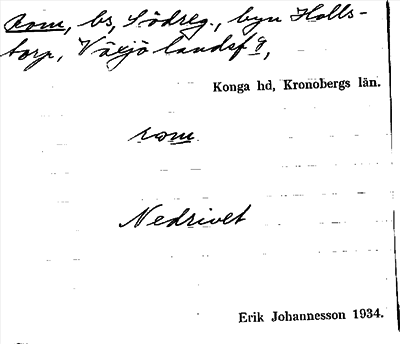 Rom, bs, Södreg., byn Halls-
torp, Växjö landsf g,
Konga hd, Kronobergs län.
rom
Nedrivet
Erik Johannesson 1934.